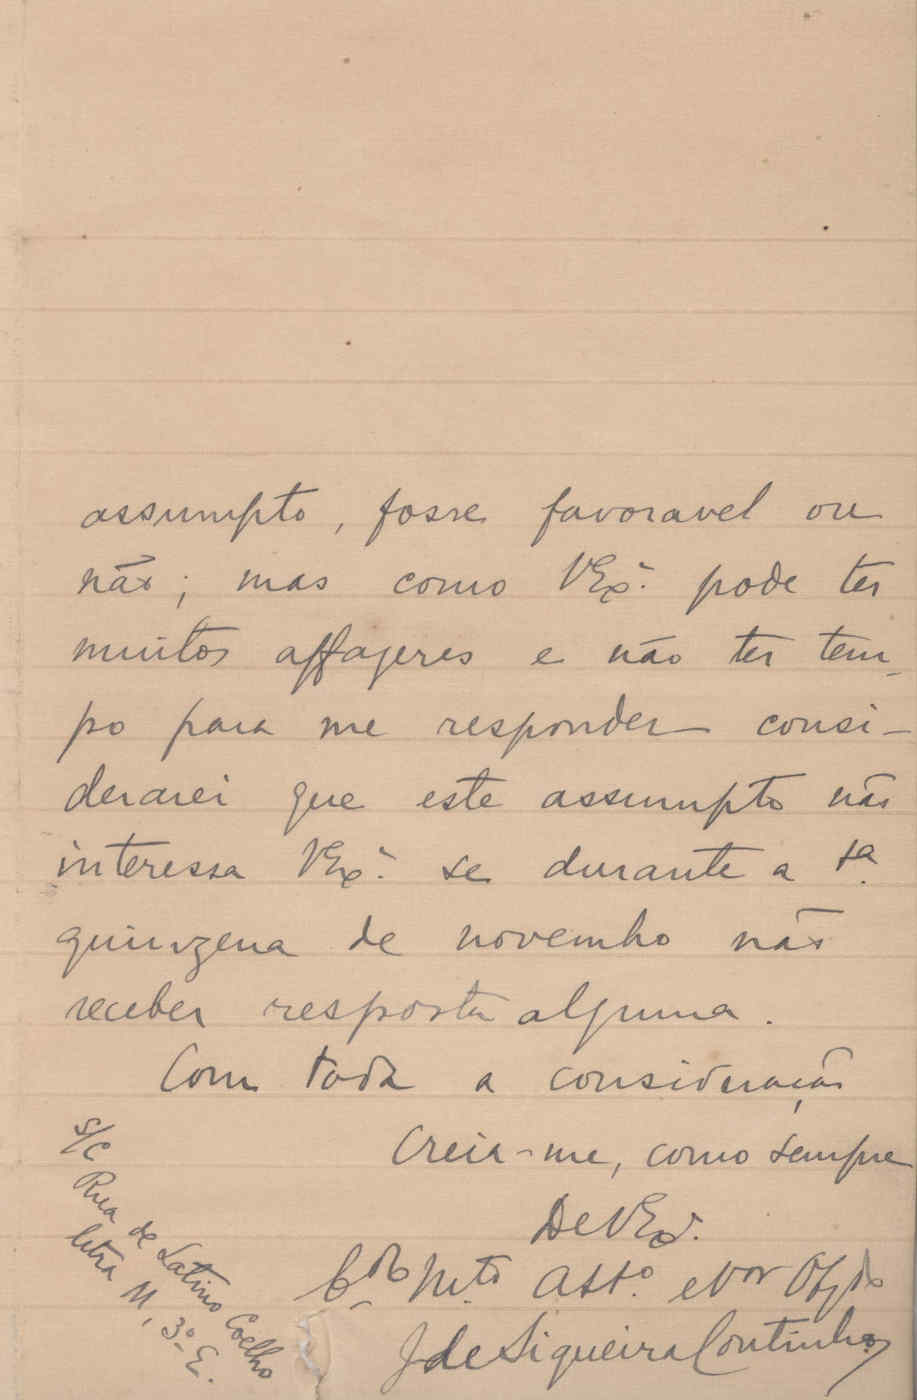 assumpto, fosse favoravel ou
não; mas como VExª. pode ter
muitos affazeres e não ter tem-
po para me responder consi-
derarei que este assumpto não
interessa VExª. se durante a 1ª.
quinzena de novembro não
receber resposta alguma.
Com toda a consideração
Creia-me, como sempre
De VExª.
Cdo Mto Atto. e Vor Obgdo
J de Siqueira Coutinho
S/C Rua de Latino Coelho
letra M, 3º-E.